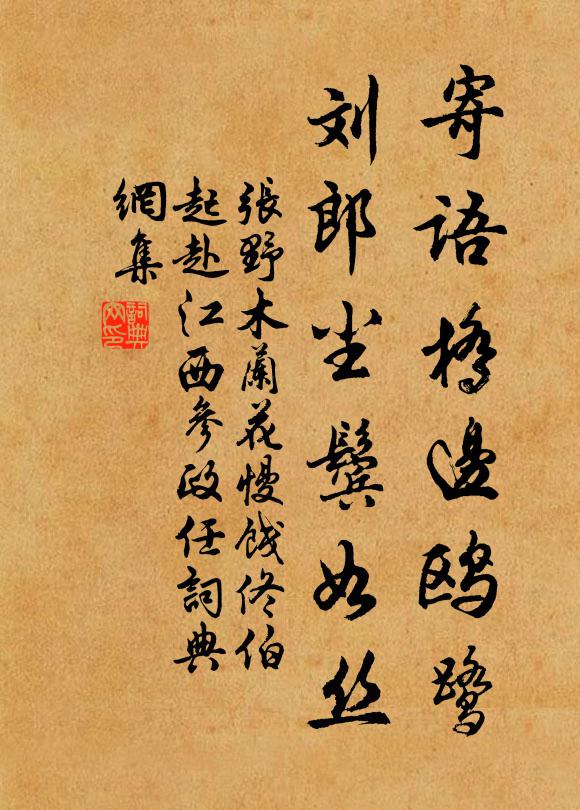 寄语橋邊鸥鹭
刘郎尘鬓如丝
張野木蘭花慢餞佟伯
起赴江西參政任詞典
網集
詞典
网印